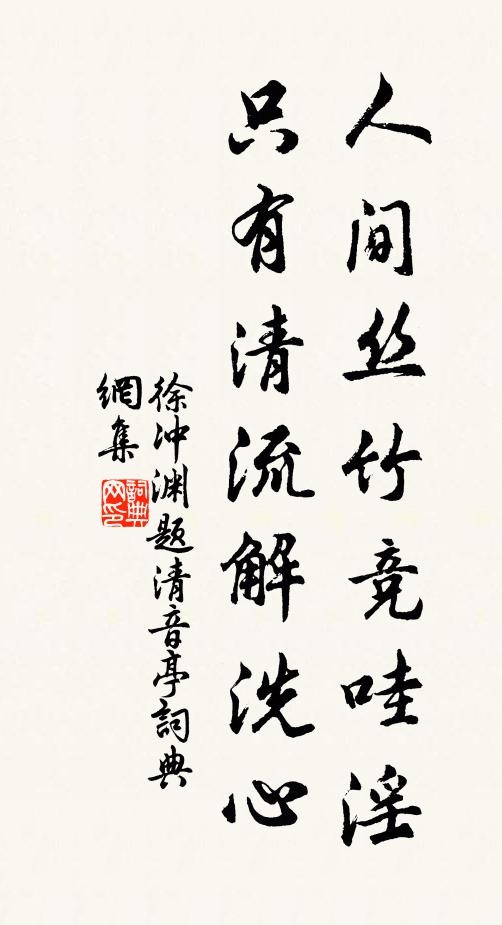 人间丝竹竞哇淫
只有清流解洗心
徐冲渊题清音亭词典
網集
詞典网印